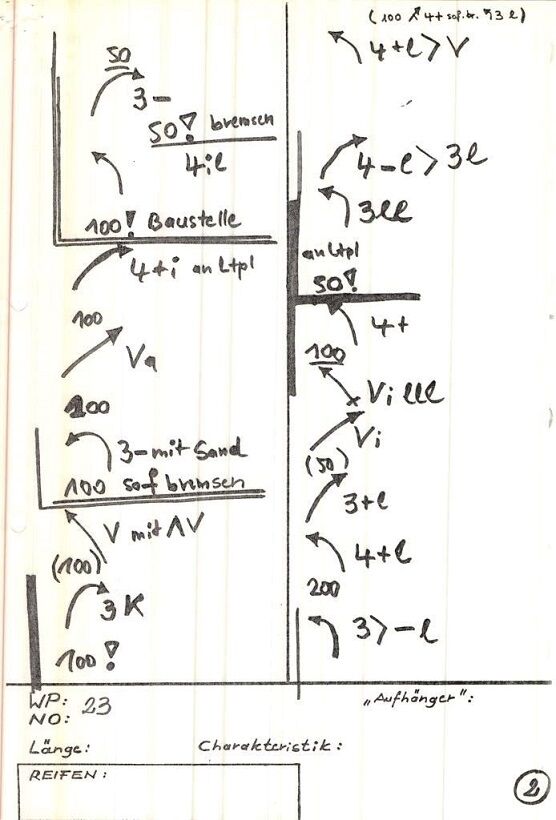 50
3-
50! bremsen
4il
100! Baustelle
4+i an Ltpl
100
Va
100
3- mit Sand
100 sof bremsen
V mit ΛV
(100)
3K
100!
(100 4+ sof.br. 3l)
4+l>V
4-l>3l
3ll
an Ltpl
50!
4+
100
Villl
Vi
(50)
3+l
4+l
200
3>-l
WP: 23
NO:
„Aufhänger":
Länge:
Charakteristik:
REIFEN:
2